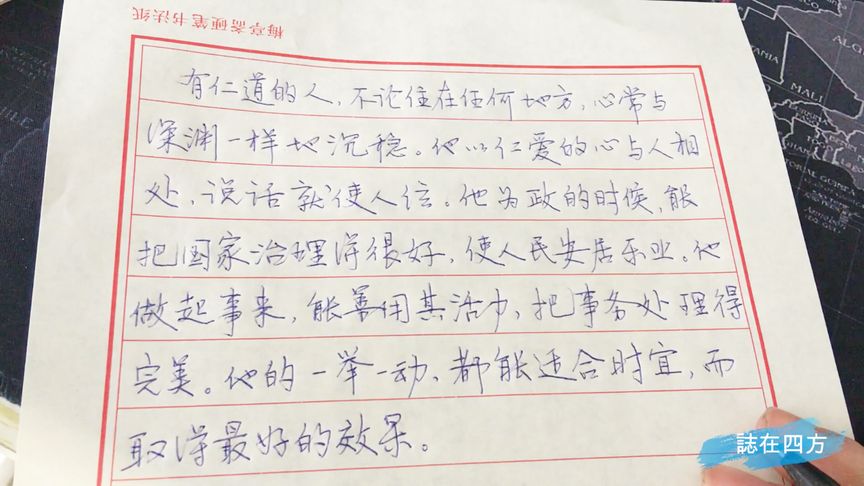 梅亭斋硬笔书法纸
有仁道的人，不论住在任何地方，心常与
深渊一样地沉稳。他以仁爱的心与人相
处，说话就使人信。他为政的时候，能
把国家治理得很好，使人民安居乐业。他
做起事来，能善用其活力，把事务处理得
完美。他的一举一动，都能适合时宜，而
取得最好的效果。
MALI
ALGERIA
誌在四方